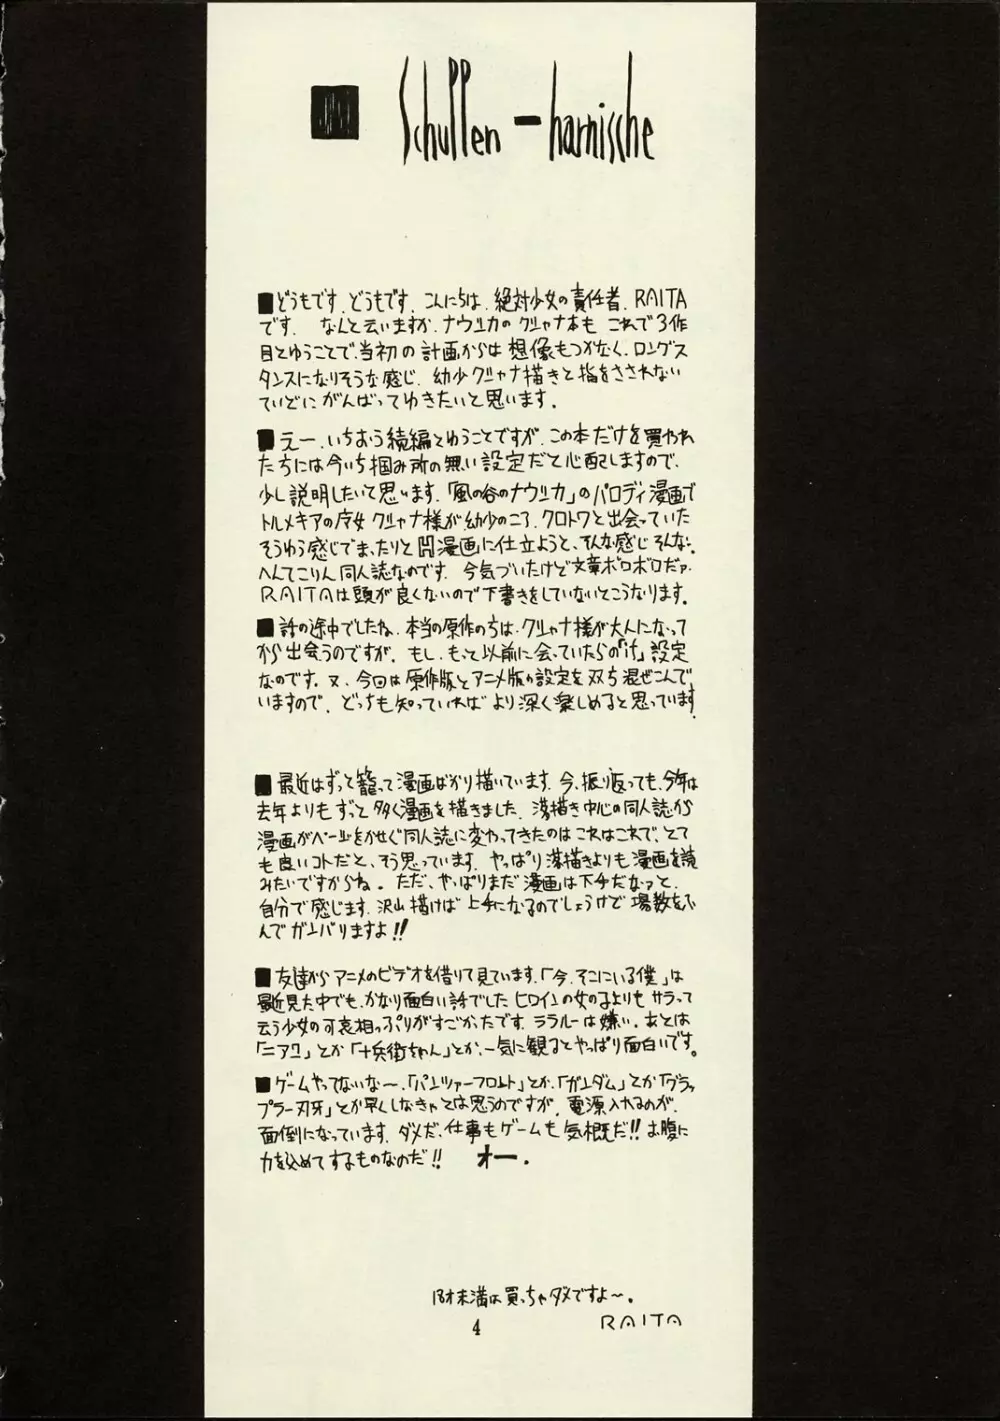 Schuppen-harnische
■どうもです、どうもです、こんにちは、絶対少女の責任者、RAITA
です。 なんと云いますか、ナウシカのクシャナ本も これで3作
目とゆうことで、当初の計画からは想像もつかなく、ロングス
タンスになりそうな感じ、幼少クシャナ描きと指をさされない
ていどにがんばってゆきたいと思います。
■えー、いちおう続編とゆうことですが、この本だけを買われ
たちには今いち掴み所の無い設定だと心配しますので、
少し説明したいと思います。「風の谷のナウシカ」のパロディ漫画で
トルメキアの皇女クシャナ様が幼少のころ、クロトワと出会っていた
そうゆう感じでまったりとH漫画に仕立ようと、そんな感じ そんな、
へんてこりん同人誌なのです。 今気づいたけど文章ボロボロだァ
RAITAは頭が良くないので下書きをしていないとこうなります。
■話の途中でしたね、本当の原作のちは、クシャナ様が大人になって
から出会うのですが、もし、もっと以前に会っていたらの「if」設定
なのです。又、今回は原作版とアニメ版の設定を双ち混ぜこんで
いますので、どっちも知っていればより深く楽しめると思っています。
■最近はずっと籠って漫画ばかり描いています。今、振り返っても、今年は
去年よりもずっと多く漫画を描きました。落描き中心の同人誌から
漫画がページをかせぐ同人誌に変わってきたのはこれはこれで、とて
も良いコトだと、そう思っています。やっぱり落描きよりも漫画を読
みたいですからね。ただ、やっぱりまだ漫画は下手だなァと、
自分で感じます。沢山描けば上手になるのでしょうけど場数をふ
んでガンバりますよ!!
■友達からアニメのビデオを借りて見ています。「今、そこにいる僕」は
最近見た中でも、かなり面白い話でした ヒロインの女の子よりも サラって
云う少女の可哀相っぷりがすごかったです。ララルーは嫌い。あとは
「ニア7」とか「十兵衛ちゃん」とか、一気に観るとやっぱり面白いです。
■ゲームやってないな〜、「パンツァーフロント」とか、「ガンダム」とか「グラッ
プラー刃牙」とか早くしなきゃとは思うのですが、電源入れるのが、
面倒になっています。ダメだ、仕事もゲームも気概だ!! お腹に
力を込めてするものなのだ!! オー。
18才未満は買っちゃダメですよ〜。
RAITA
4